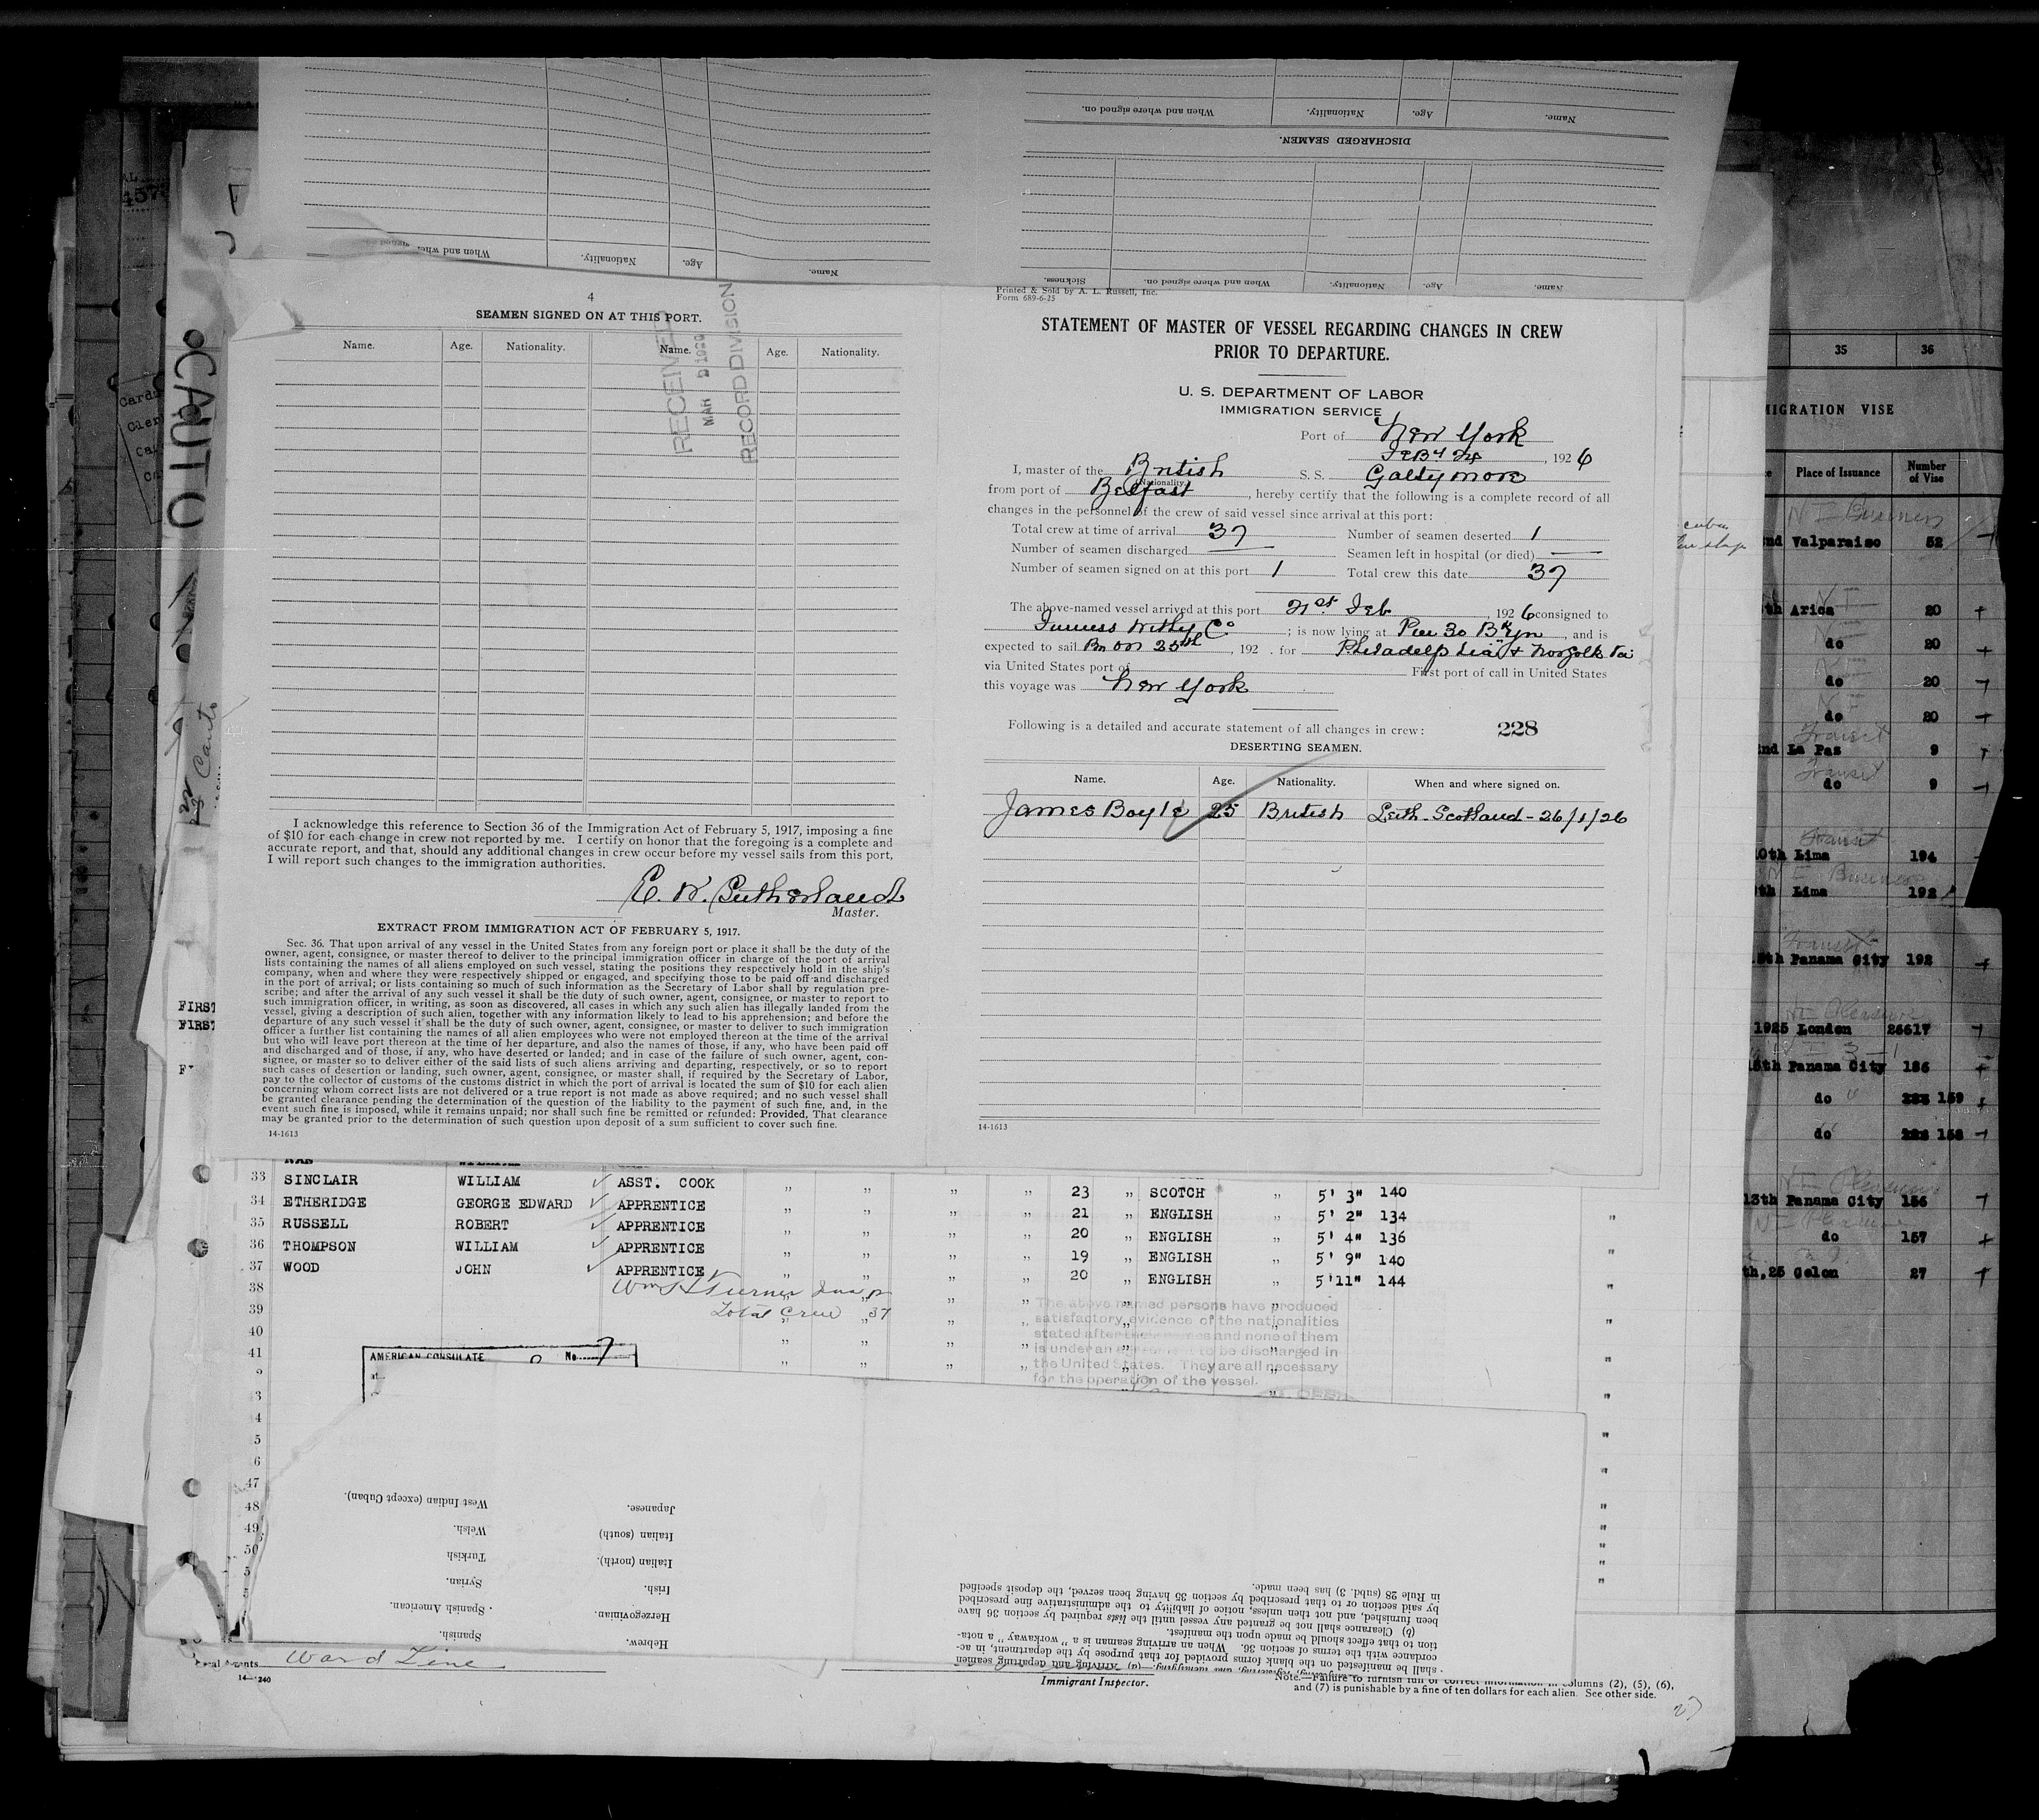 When and where signed on.
Nationality.
Age.
Name.
DISCHARGED SEAMEN.
When and where signed on.
Nationality.
Age.
Name.
Sickness.
When and where signed on.
Nationality.
Age.
Name.
4
SEAMEN SIGNED ON AT THIS PORT.
Name. Age. Nationality. Name. Age. Nationality.
RECEIVED
MAR
RECORD DIVISION
I acknowledge this reference to Section 36 of the Immigration Act of February 5, 1917, imposing a fine
of $10 for each change in crew not reported by me. I certify on honor that the foregoing is a complete and
accurate report, and that, should any additional changes in crew occur before my vessel sails from this port,
I will report such changes to the immigration authorities.
Master.
EXTRACT FROM IMMIGRATION ACT OF FEBRUARY 5, 1917.
Sec. 36. That upon arrival of any vessel in the United States from any foreign port or place it shall be the duty of the
owner, agent, consignee, or master thereof to deliver to the principal immigration officer in charge of the port of arrival
lists containing the names of all aliens employed on such vessel, stating the positions they respectively hold in the ship's
company, when and where they were respectively shipped or engaged, and specifying those to be paid off and discharged
in the port of arrival; or lists containing so much of such information as the Secretary of Labor shall by regulation pre-
scribe; and after the arrival of any such vessel it shall be the duty of such owner, agent, consignee, or master to report to
such immigration officer, in writing, as soon as discovered, all cases in which any such alien has illegally landed from the
vessel, giving a description of such alien, together with any information likely to lead to his apprehension; and before the
departure of any such vessel it shall be the duty of such owner, agent, consignee, or master to deliver to such immigration
officer a further list containing the names of all alien employees who were not employed thereon at the time of the arrival
but who will leave port thereon at the time of her departure, and also the names of those, if any, who have been paid off
and discharged and of those, if any, who have deserted or landed; and in case of the failure of such owner, agent, con-
signee, or master so to deliver either of the said lists of such aliens arriving and departing, respectively, or so to report
such cases of desertion or landing, such owner, agent, consignee, or master shall, if required by the Secretary of Labor,
pay to the collector of customs of the customs district in which the port of arrival is located the sum of $10 for each alien
concerning whom correct lists are not delivered or a true report is not made as above required; and no such vessel shall
be granted clearance pending the determination of the question of the liability to the payment of such fine, and, in the
event such fine is imposed, while it remains unpaid; nor shall such fine be remitted or refunded: Provided, That clearance
may be granted prior to the determination of such question upon deposit of a sum sufficient to cover such fine.
14-1613
Printed & Sold by A. L. Russell, Inc.
Form 689-6-25
STATEMENT OF MASTER OF VESSEL REGARDING CHANGES IN CREW
PRIOR TO DEPARTURE.
U. S. DEPARTMENT OF LABOR
IMMIGRATION SERVICE
Port of New York
Feby 24, 1926
I, master of the British S. S. Galtymore
(Nationality.)
from port of Belfast, hereby certify that the following is a complete record of all
changes in the personnel of the crew of said vessel since arrival at this port:
Total crew at time of arrival 37 Number of seamen deserted 1
Number of seamen discharged — Seamen left in hospital (or died) —
Number of seamen signed on at this port 1 Total crew this date 37
The above-named vessel arrived at this port 21st Feb, 1926 consigned to
Furness Withy Co; is now lying at Pier 30 Bklyn, and is
expected to sail on 25th, 192 . for Philadelphia & Norfolk Va
via United States port of First port of call in United States
this voyage was New York
Following is a detailed and accurate statement of all changes in crew: 228
DESERTING SEAMEN.
Name. Age. Nationality. When and where signed on.
James Boyle 25 British Leith Scotland - 26/1/26
14-1613
CAUTO
Cauto
FIRST
FIRST
33 SINCLAIR WILLIAM ASST. COOK " " " " 23 " SCOTCH " 5' 3" 140
34 ETHERIDGE GEORGE EDWARD APPRENTICE " " " " 21 " ENGLISH " 5' 2" 134
35 RUSSELL ROBERT APPRENTICE " " " " 20 " ENGLISH " 5' 4" 136
36 THOMPSON WILLIAM APPRENTICE " " " " 19 " ENGLISH " 5' 9" 140
37 WOOD JOHN APPRENTICE " " " " 20 " ENGLISH " 5'11" 144
38 Wm H Turner
39 Total Crew 37
40
41
The above named persons have produced
satisfactory evidence of the nationalities
stated after their names and none of them
is under an agreement to be discharged in
the United States. They are all necessary
for the operation of the vessel.
AMERICAN CONSULATE No. 7
at
3
4
5
6
47
48
49
50
West Indian (except Cuban).
Welsh.
Turkish
Syrian.
Spanish American.
Spanish.
Japanese.
Italian (south)
Italian (north).
Irish.
Herzegovinian.
Hebrew.
shall be manifested on the blank forms provided for that purpose by the department, in ac-
cordance with the terms of section 36. When an arriving seaman is a "workaway" a nota-
tion to that effect should be made upon the manifest.
(b) Clearance shall not be granted any vessel until the lists required by section 36 have
been furnished, and not then unless, notice of liability to the administrative fine prescribed
by said section or to that prescribed by section 35 having been served, the deposit specified
in Rule 28 (subd. 3) has been made.
Ward Line
14-1240
Immigrant Inspector.
Note.—Failure to furnish full or correct information in columns (2), (5), (6),
and (7) is punishable by a fine of ten dollars for each alien. See other side.
35 36
MIGRATION VISE
Place of Issuance Number of Vise
Valparaiso 52
Arica 20
do 20
do 20
do 20
La Paz 9
do 9
Lima 194
Lima 192
Panama City 192
1925 London 26617
15th Panama City 186
do 159
do 158
13th Panama City 156
do 157
th,25 Colon 27